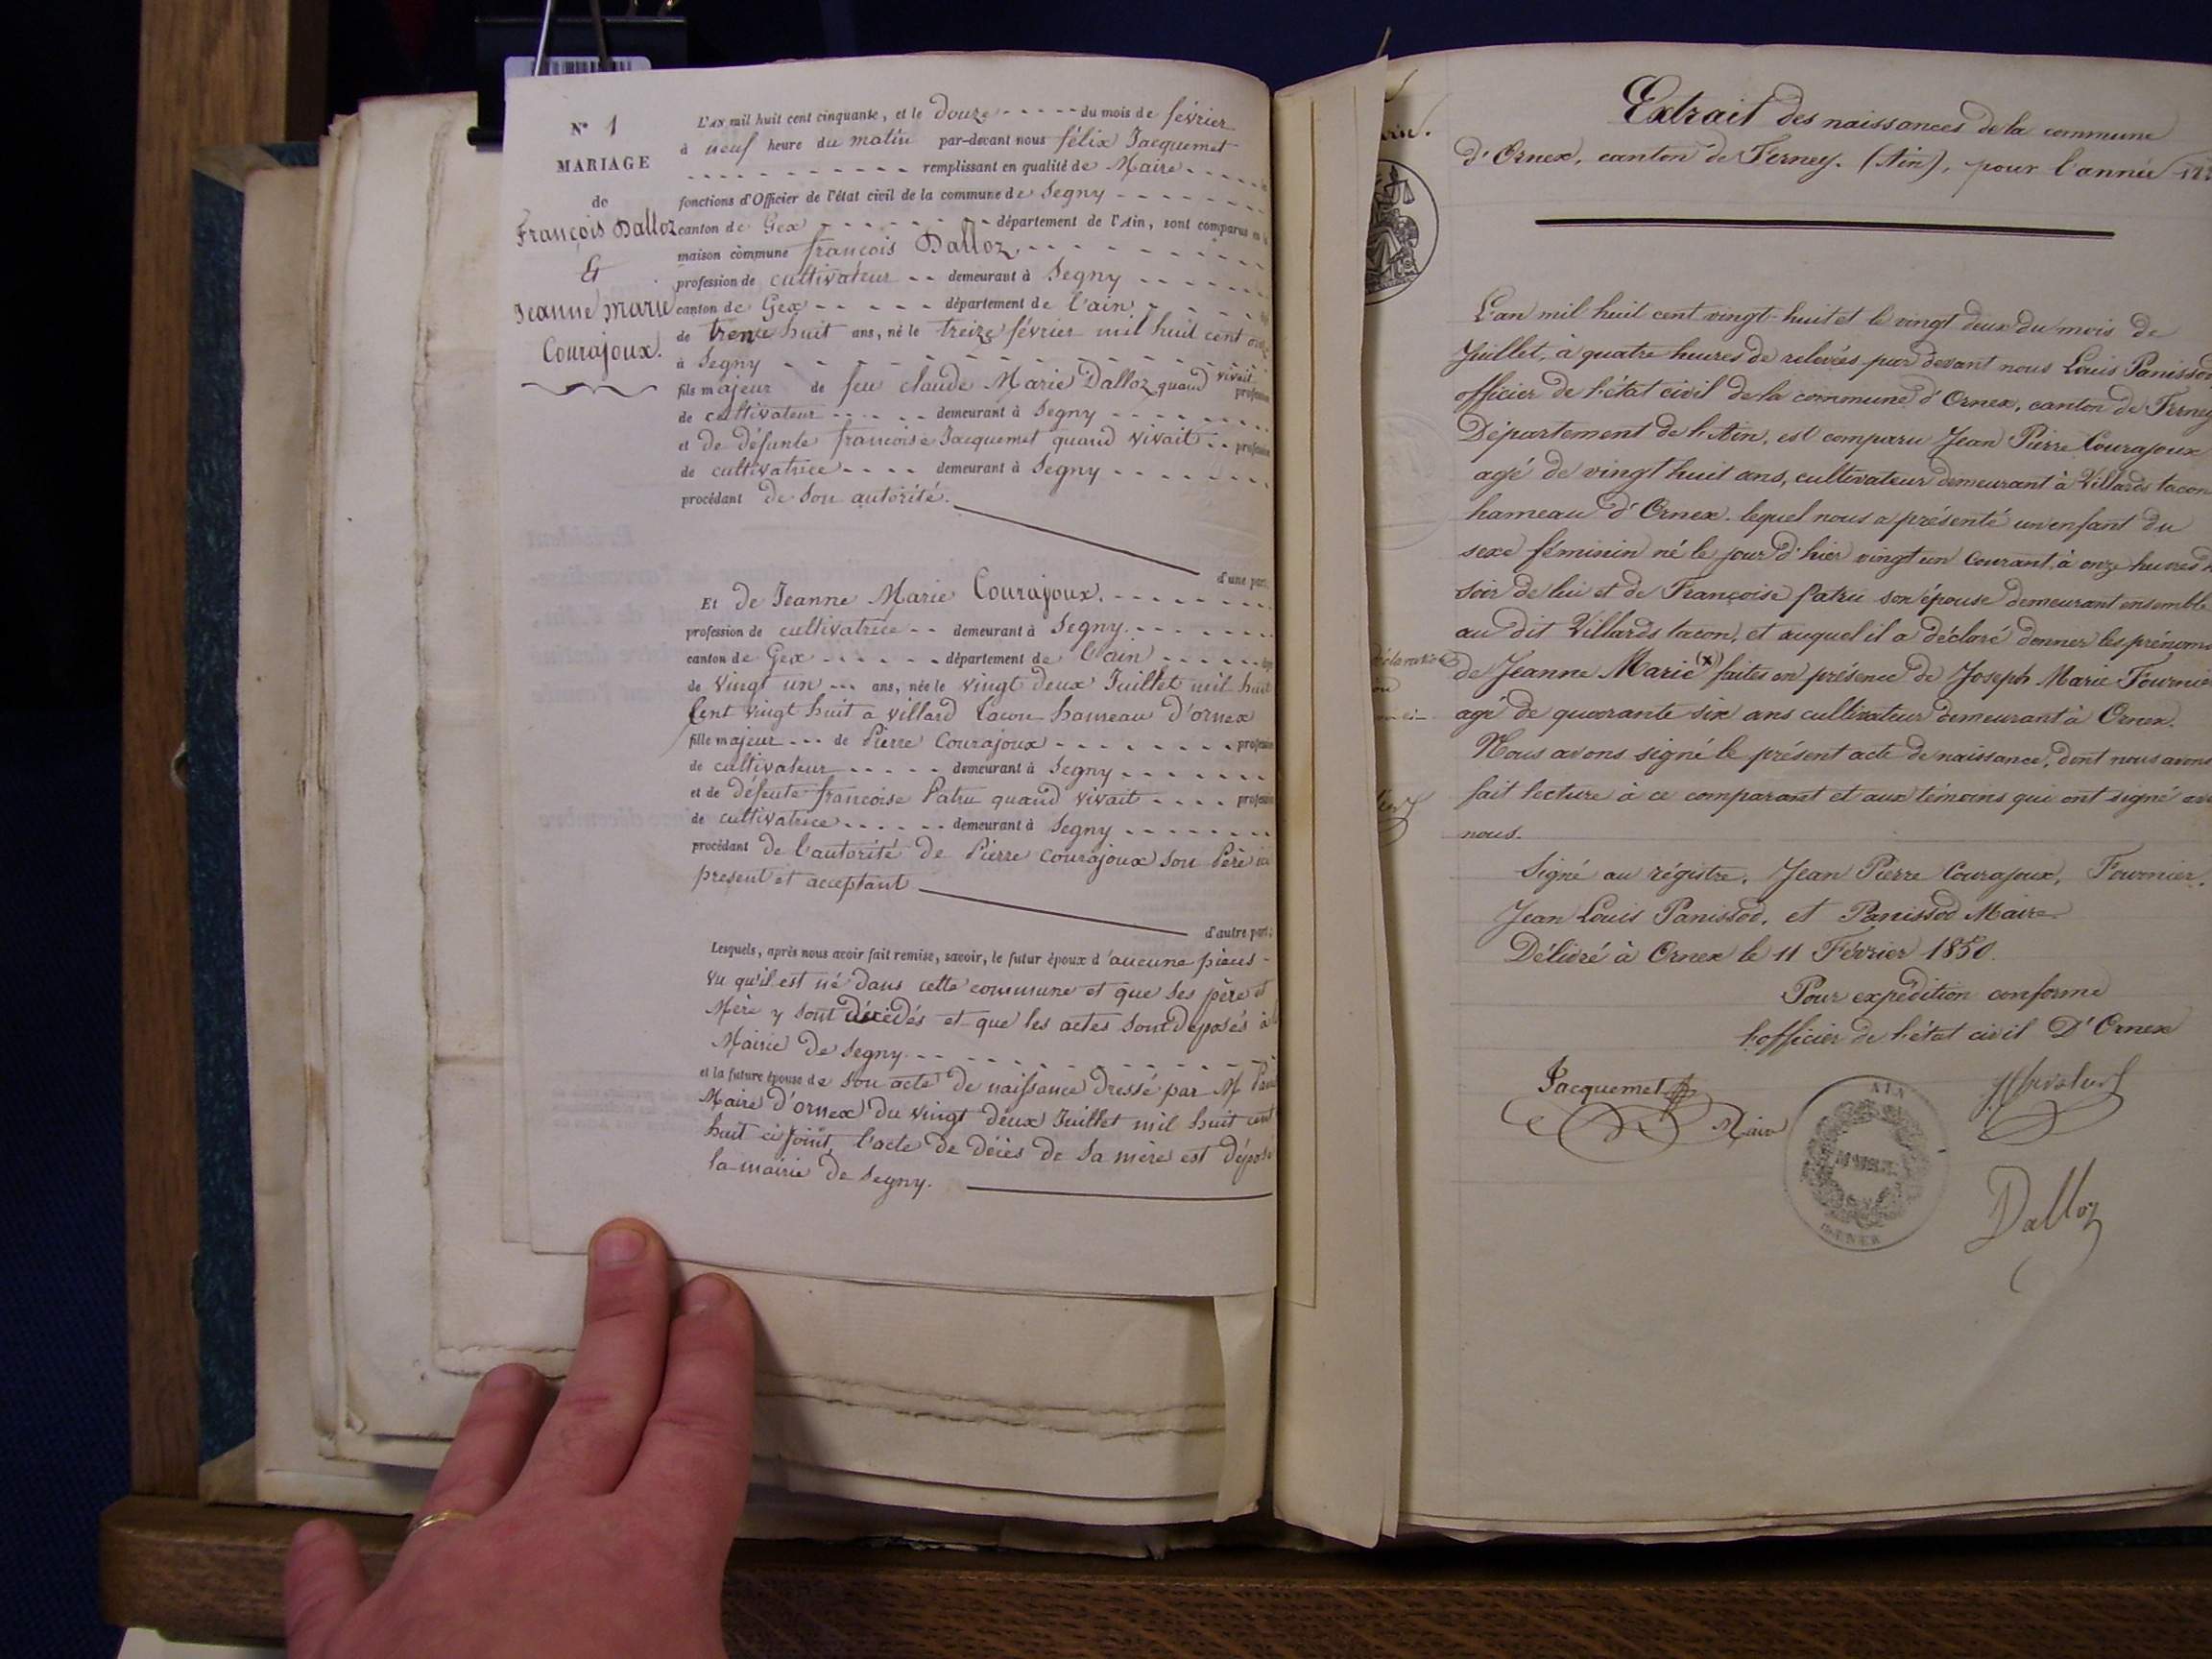 N° 1
MARIAGE
de
François Dalloz
Et
Jeanne Marie
Courajoux.
L'AN mil huit cent cinquante, et le Douze du mois de février
à neuf heure du matin par-devant nous félix Jacquemet
remplissant en qualité de Maire
fonctions d'Officier de l'état civil de la commune de Segny
canton de Gex département de l'Ain, sont comparus en
maison commune françois Dalloz
profession de cultivateur demeurant à Segny
canton de Gex département de l'ain
de trente huit ans, né le treize février mil huit cent
à Segny
fils majeur de feu claude Marie Dalloz quand vivait profession
de cultivateur demeurant à Segny
et de défunte francoise Jacquemet quand vivait profession
de cultivatrice demeurant à Segny
procédant de son autorité.
d'une part.
Et de Jeanne Marie Courajoux.
profession de cultivatrice demeurant à Segny.
canton de Gex département de l'ain
de vingt un ans, née le vingt deux Juillet mil huit
Cent vingt huit a villard tacon hameau d'ornex
fille majeur de Pierre Courajoux profession
de cultivateur demeurant à Segny
et de défeute francoise Patru quand vivait profession
de cultivatrice demeurant à Segny
procédant de l'autorité de Pierre courajoux son Père ici
present et acceptant
d'autre part:
Lesquels, après nous avoir fait remise, savoir, le futur époux d'aucune pièces
vu qu'il est né dans cette commune et que ses père et
Mère y sont décédés et que les actes sont déposés à
Mairie de Segny
et la future épouse de son acte de naissance dressé par M
Maire d'ornex du vingt deux Juillet mil huit cent
huit ci joint, l'acte de décès de sa mère est déposé
la mairie de Segny.
Extrait des naissances de la commune
d'Ornex, canton de Ferney. (Ain), pour l'année
L'an mil huit cent vingt-huit et le vingt deux du mois de
Juillet, à quatre heures de relevées par devant nous Louis Panissod
officier de l'état civil de la commune d'Ornex, canton de Ferney
Département de l'Ain, est comparu Jean Pierre Courajoux
agé de vingt huit ans, cultivateur demeurant à Villards tacon
hameau d'Ornex. lequel nous a présenté un enfant du
sexe féminin né le jour d'hier vingt un Courant, à onze heures
soir de lui et de Françoise Patru son épouse demeurant ensemble
au dit Villards tacon, et auquel il a déclaré donner les prénoms
de Jeanne Marie (x) faites en présence de Joseph Marie Fournier
agé de quarante six ans cultivateur demeurant à Ornex.
Nous avons signé le présent acte de naissance, dont nous avons
fait lecture à ce comparant et aux témoins qui ont signé avec
nous.
Signé au régistre, Jean Pierre Courajoux, Fournier,
Jean Louis Panissod, et Panissod Maire.
Délivré à Ornex le 11 Février 1850.
Pour expédition conforme
l'officier de l'état civil D'Ornex
Jacquemet
Maire
AIN
Dalloz